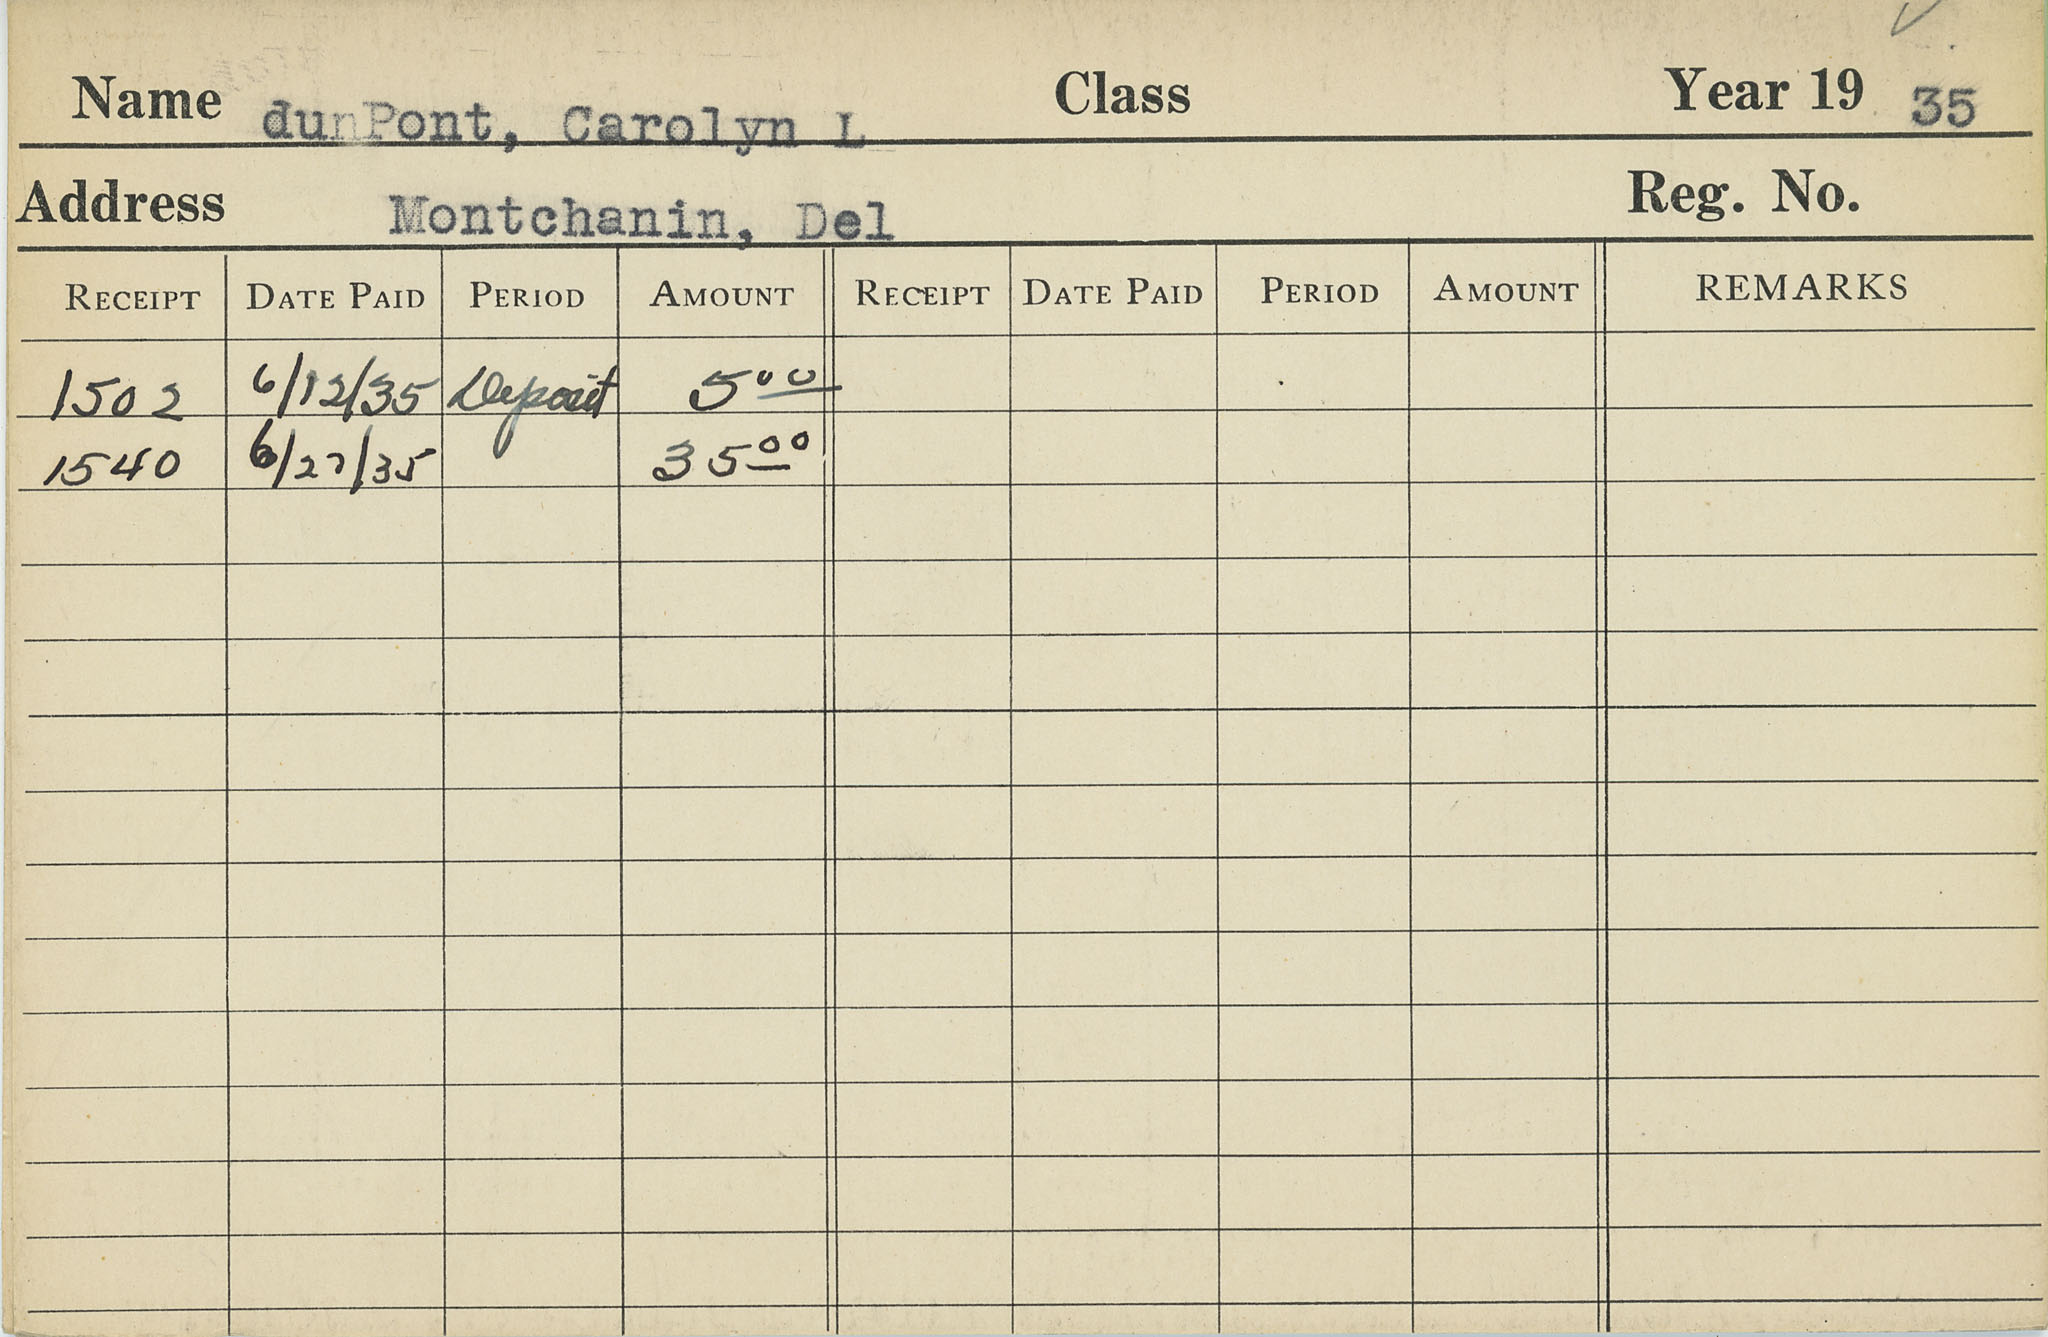 Name dunPont, Carolyn L Class Year 19 35
Address Montchanin, Del Reg. No.
RECEIPT DATE PAID PERIOD AMOUNT RECEIPT DATE PAID PERIOD AMOUNT REMARKS
1502 6/12/35 Deposit 5 00
1540 6/27/35 35 00